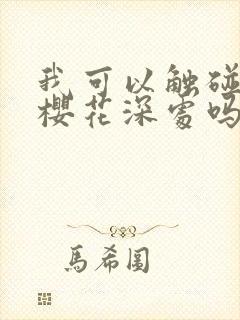 我可以触碰
樱花深处吗
馬希圖